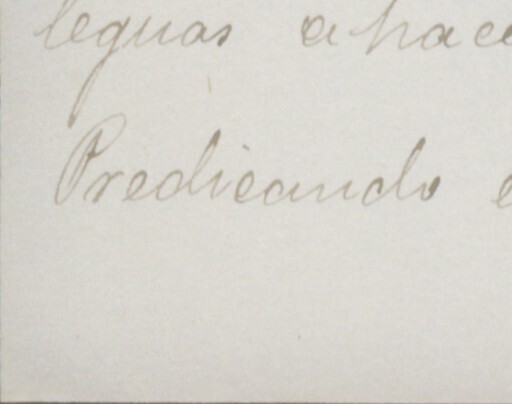 leguas apace
Predicando e